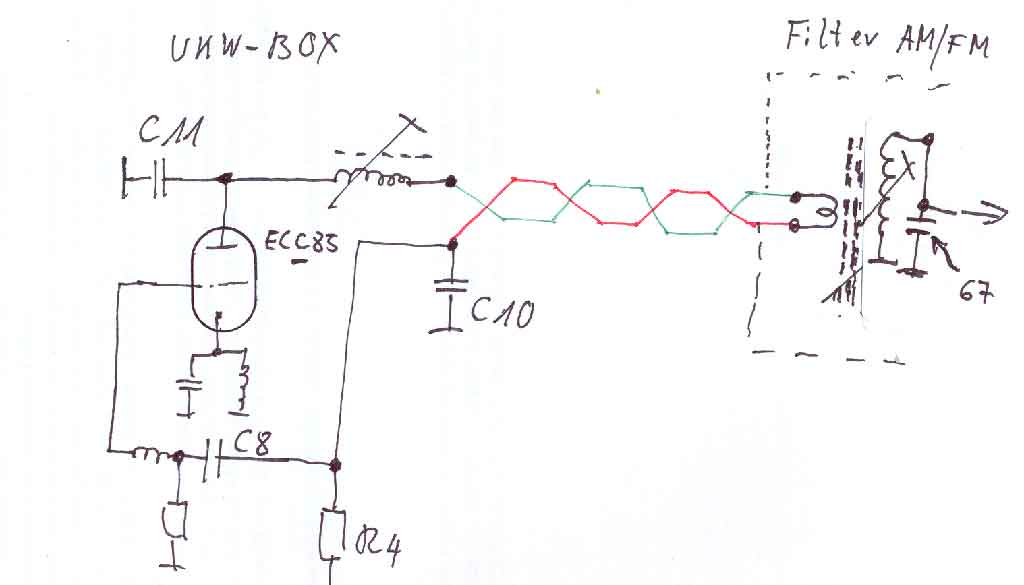 UKW-BOX
Filter AM/FM
C11
ECC85
C10
67
C8
R4